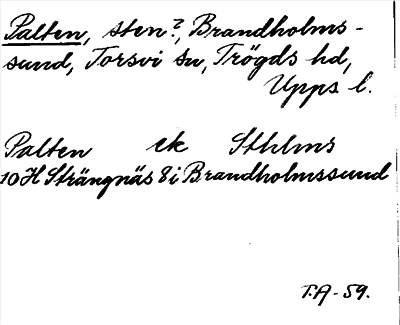 Palten, sten?, Brandholms-
sund, Torsvi sn, Trögds hd,
Upps l.
Palten ek Sthlms
10H Strängnäs 8i Brandholmssund
T.A-59.